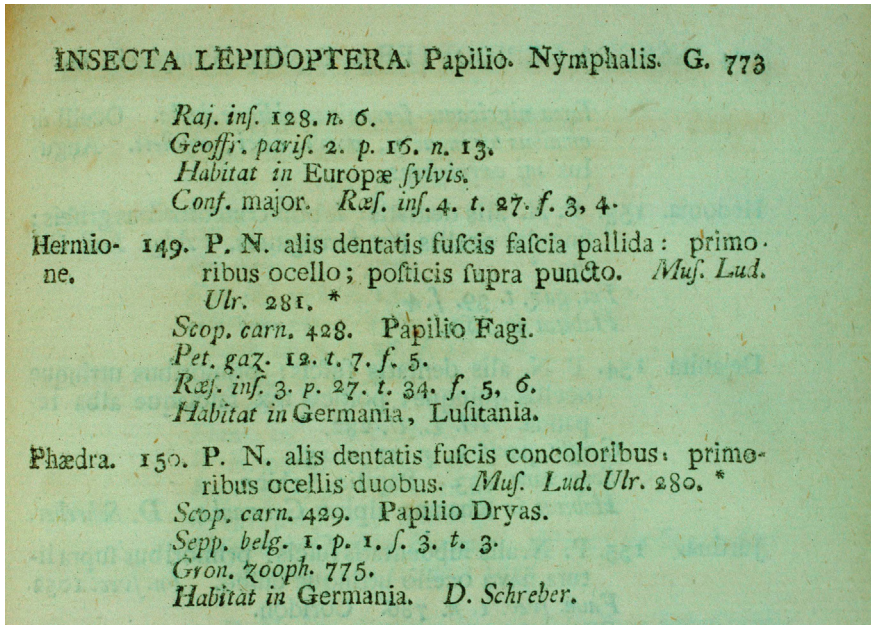 INSECTA LEPIDOPTERA. Papilio. Nymphalis. G. 773
Raj. inſ. 128. n. 6.
Geoffr. pariſ. 2. p. 16. n. 13.
Habitat in Europæ ſylvis.
Conf. major. Ræſ. inſ. 4. t. 27. f. 3, 4.
Hermio- 149. P. N. alis dentatis fuſcis faſcia pallida: primo-
ne. ribus ocello; poſticis ſupra puncto. Muſ. Lud.
Ulr. 281. *
Scop. carn. 428. Papilio Fagi.
Pet. gaz. 12. t. 7. f. 5.
Ræſ. inſ. 3. p. 27. t. 34. f. 5, 6.
Habitat in Germania, Luſitania.
Phædra. 150. P. N. alis dentatis fuſcis concoloribus: primo-
ribus ocellis duobus. Muſ. Lud. Ulr. 280. *
Scop. carn. 429. Papilio Dryas.
Sepp. belg. 1. p. 1. ſ. 3. t. 3.
Gron. zooph. 775.
Habitat in Germania. D. Schreber.